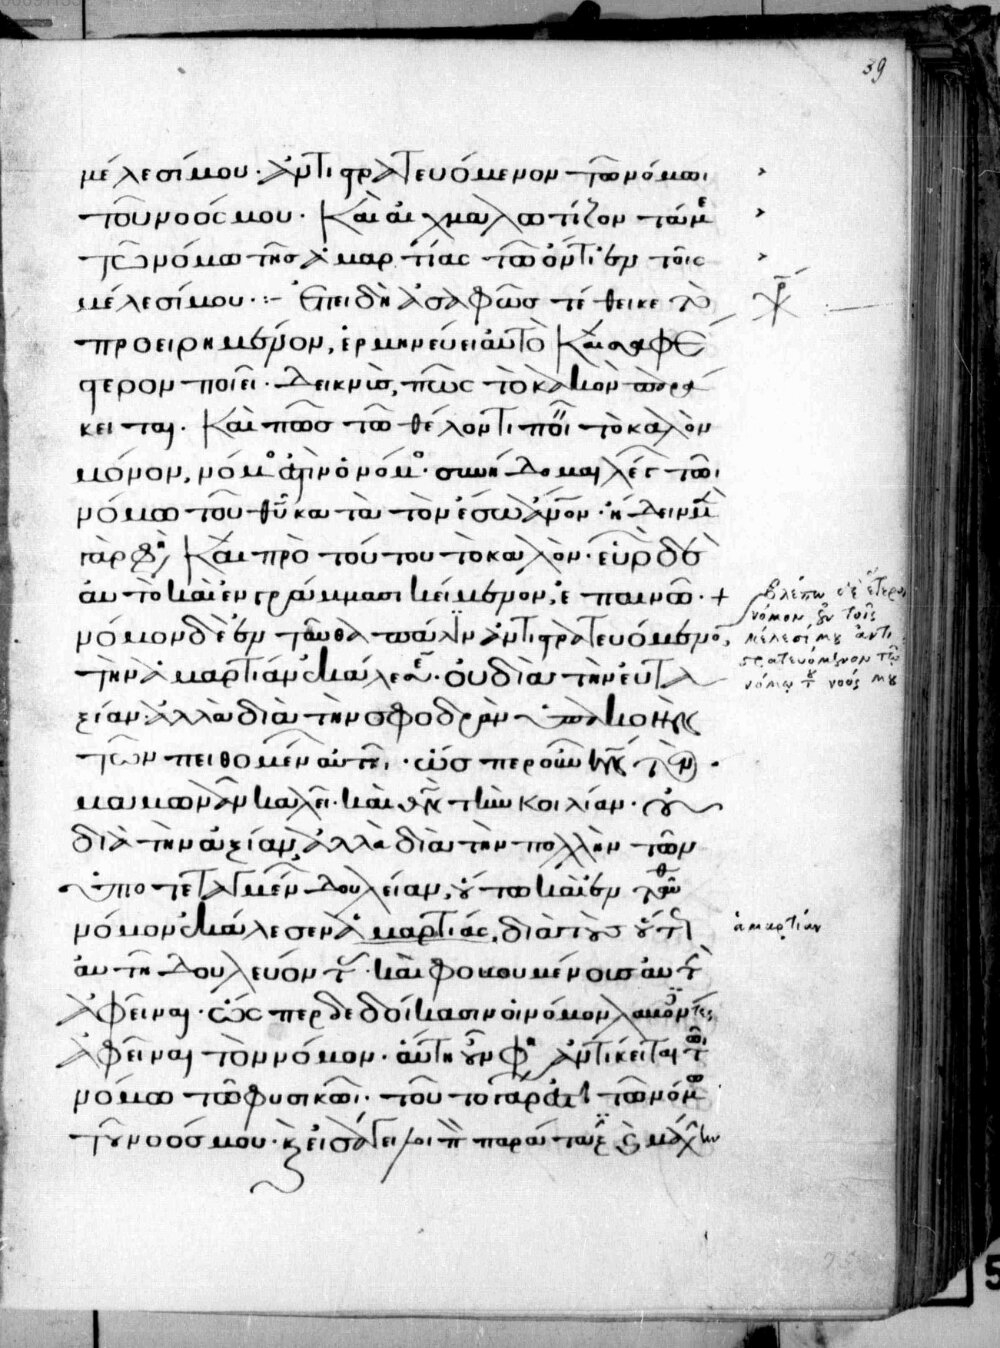 39
μέλεσί μου· ἀντιστρατευόμενον τῶ νόμωι
τοῦ νοός μου· Καὶ αἰχμαλωτίζον τά με
τῶ νόμω τῆς ἁμαρτίας τῶ ὄντι ἐν τοῖς
μέλεσί μου· :- Ἐπειδὴ ἀσαφῶς τέθεικε τὸ
προειρημένον, ἑρμηνεύει αὐτὸ Καὶ σαφέ
στερον ποιεῖ· Δεικνὺς, πῶς τὸ κακὸν παρά
κειται· Καὶ πῶς τῶ θέλοντι ποιεῖ τὸ καλὸν
μόνον, νόμος
νόμω τοῦ θῦ κατὰ τὸν ἔσω ἄνον· ἤδειν μὲν
γὰρ φη, Καὶ πρὸ τούτου τὸ καλὸν· εὑρὼν δὲ
αὐτὸ καὶ ἐν γράμμασι κείμενον, ἐπαινῶ· +
νόμον δὲ ἐν ἀντιστρατευόμενον,
τὴν ἁμαρτίαν ἐκάλεσεν· οὐ διὰ τὴν εὐτα
ξίαν· ἀλλὰ διὰ τὴν σφοδρὰν ὑπακοὴν
τῶν πειθομένων αὐτῆι· ὥσπερ οὖν κν τὸν
μαμωνᾶν καλεῖ· καὶ θν τὴν κοιλίαν· οὐ
διὰ τὴν ἀξίαν, ἀλλὰ διὰ τὴν πολλὴν τῶν
ὑποτεταγμένων δουλείαν, οὕτω καὶ ἐν
νόμον ἐκάλεσεν ἁμαρτίας, διὰ τοὺς οὕτω
αὐτῆ δουλεύοντας· καὶ φοβουμένοις αὐτὴν
ἀφεῖναι· ὥσπερ δεδοίκασιν οἱ νόμον λαβόντες
ἀφεῖναι τὸν νόμον· αὕτη οὖν φη ἀντίκειται τῶ
νόμω τῶ φυσικῶι· τοῦτο γάρ ἐστι τῶ νόμω
τοῦ νοός μου· κ εἰσάγει λοιπ παράταξ κ μάχην
βλέπω δὲ ἕτερον
νόμον ἐν τοῖς
μέλεσί μου ἀντι
στρατευόμενον τῶ
νόμω τ νοός μου
ἁμαρτίαν